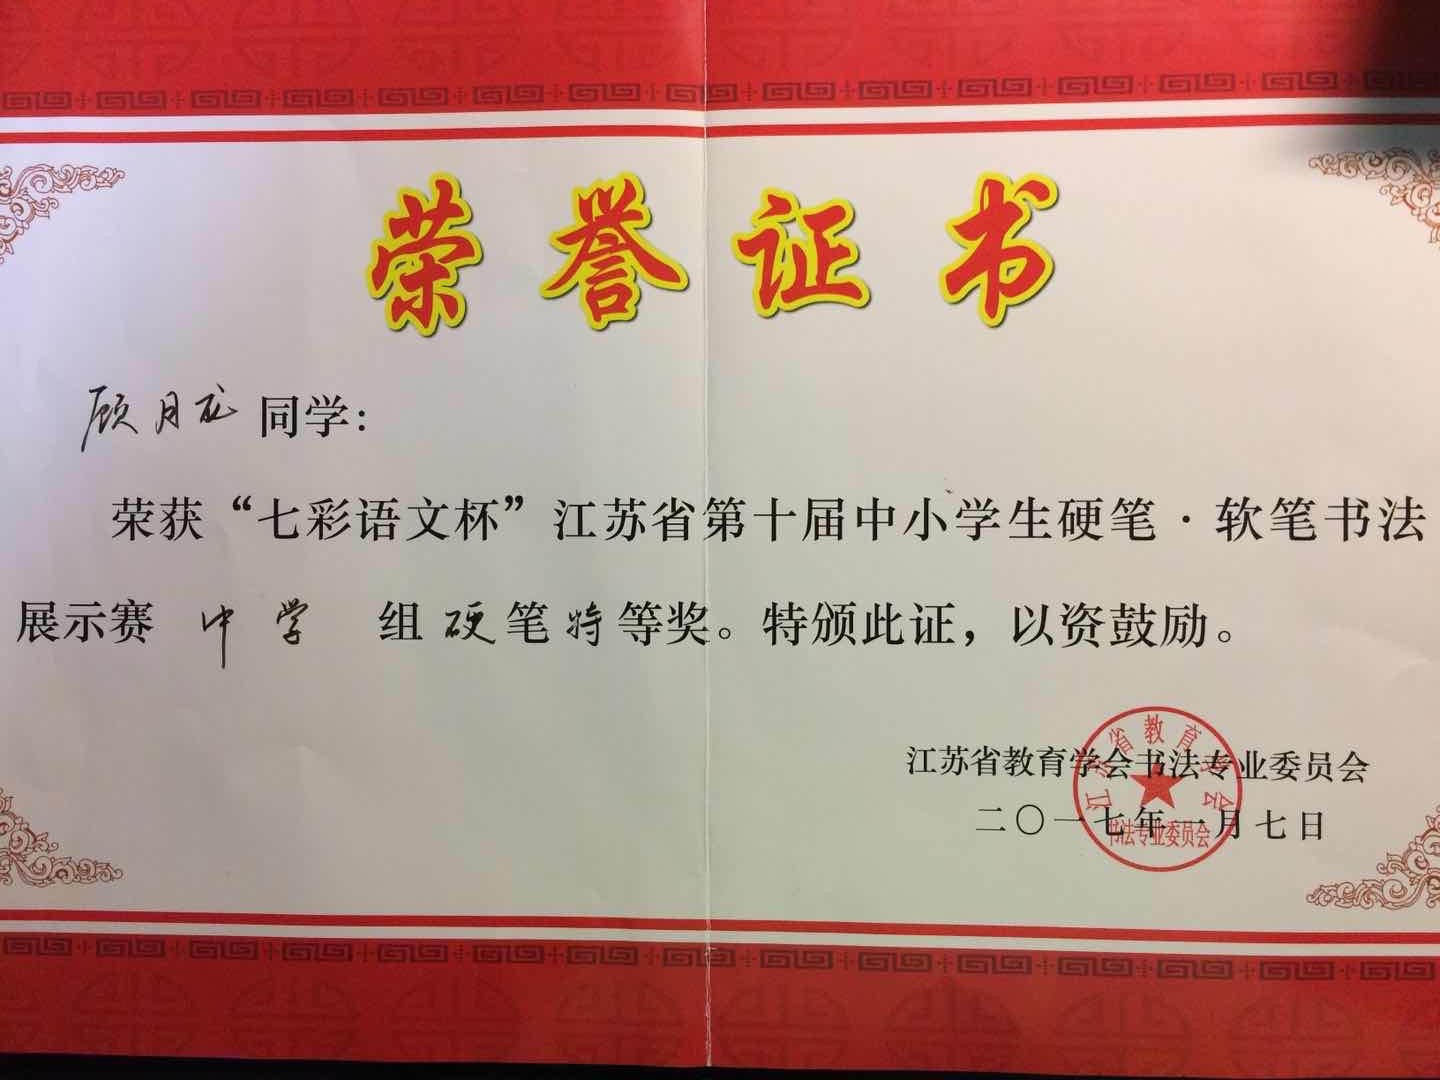 荣誉证书
顾月龙 同学：
荣获“七彩语文杯”江苏省第十届中小学生硬笔·软笔书法
展示赛 中学 组硬笔特等奖。特颁此证，以资鼓励。
江苏省教育学会书法专业委员会
二〇一七年一月七日
江苏省教育学会
书法专业委员会